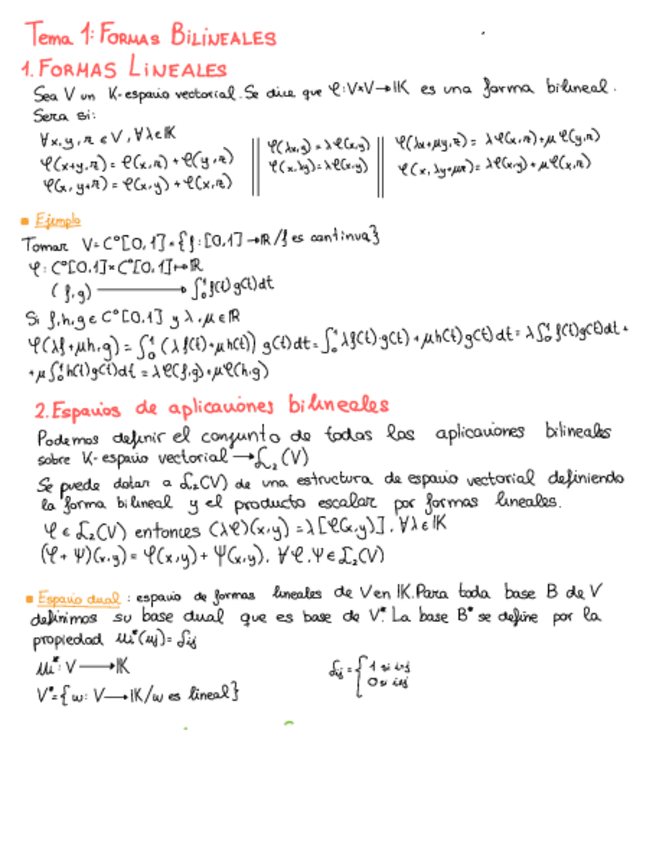 Tema 1: FORMAS BILINEALES
1. FORMAS LINEALES
Sea V un K-espacio vectorial. Se dice que φ: V×V→IK es una forma bilineal.
Sera si:
∀x,y,z ∈ V, ∀λ∈IK
φ(x+y,z) = φ(x,z) + φ(y,z)
φ(x,y+z) = φ(x,y) + φ(x,z)
φ(λx,y) = λφ(x,y)
φ(x,λy) = λφ(x,y)
φ(λx+μy,z) = λφ(x,z)+μφ(y,z)
φ(x,λy+μz) = λφ(x,y)+μφ(x,z)
Ejemplo
Tomar V=C°[0,1]={f:[0,1]→IR/f es continua}
φ: C°[0,1]×C°[0,1]↦IR
(f,g) ⟶ ∫₀¹f(t)g(t)dt
Si f,h,g∈C°[0,1] y λ,μ∈IR
φ(λf+μh,g) = ∫₀¹(λf(t)+μh(t)) g(t)dt = ∫₀¹λf(t)g(t)+μh(t)g(t)dt = λ∫₀¹f(t)g(t)dt+
+μ∫₀¹h(t)g(t)dt = λφ(f,g)+μφ(h,g)
2. Espacios de aplicaciones bilineales
Podemos definir el conjunto de todas las aplicaciones bilineales
sobre K-espacio vectorial → ℒ₂(V)
Se puede dotar a ℒ₂(V) de una estructura de espacio vectorial definiendo
la forma bilineal y el producto escalar por formas lineales.
φ∈ℒ₂(V) entonces (λφ)(x,y) = λ[φ(x,y)], ∀λ∈IK
(φ+Ψ)(x,y) = φ(x,y)+Ψ(x,y), ∀φ,Ψ∈ℒ₂(V)
Espacio dual: espacio de formas lineales de V en IK. Para toda base B de V
definimos su base dual que es base de V*. La base B* se define por la
propiedad ui*(uj)=δij
ui*: V ⟶ IK
V*={w: V→IK/w es lineal}
δij = { 1 si i=j
0 si i≠j